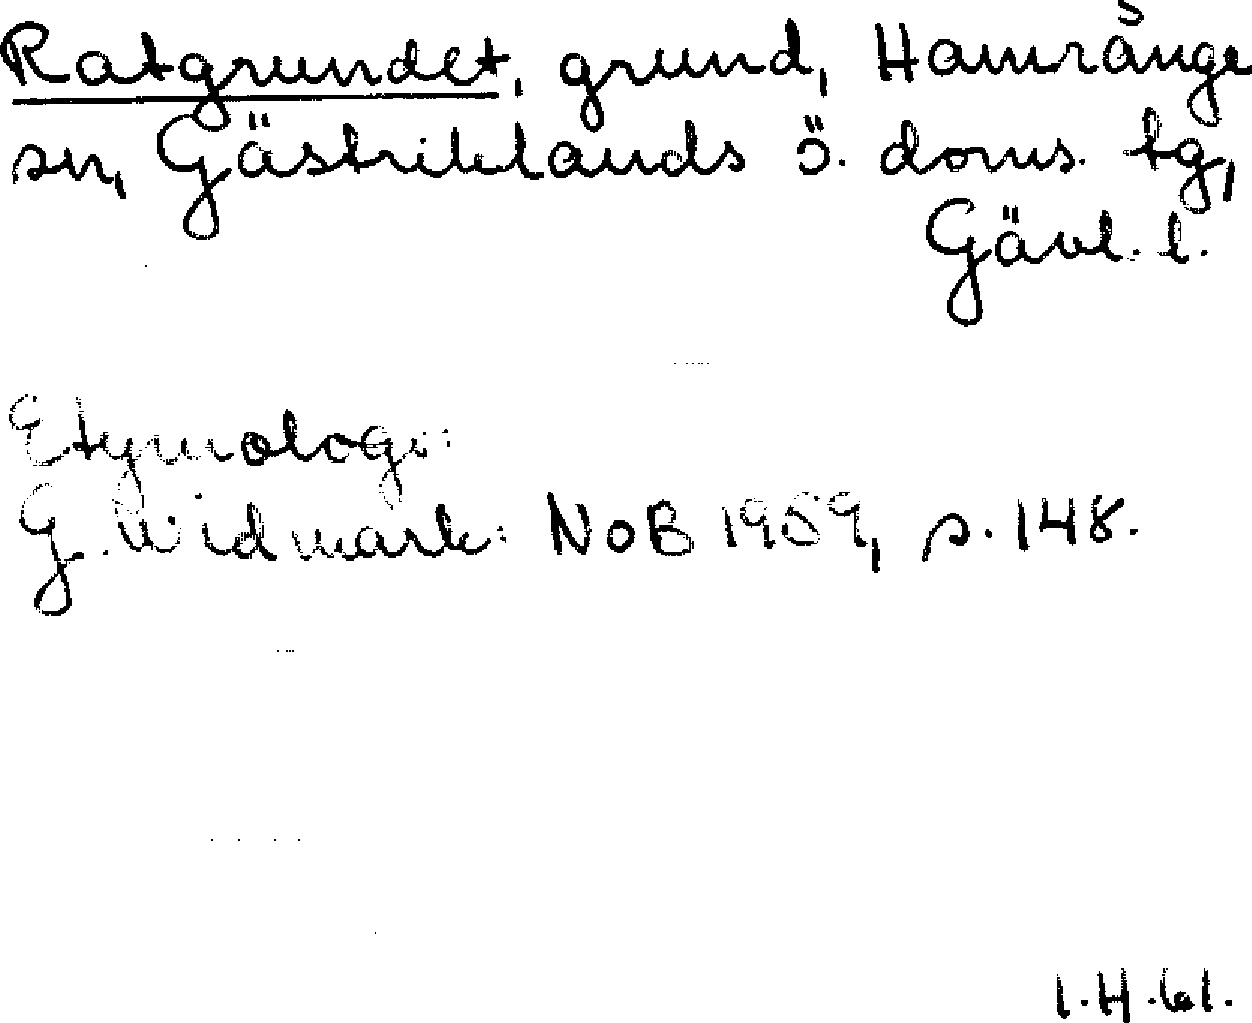 Ratgrundet, grund, Hamrånge
sn, Gästriklands ö. doms. tg,
Gävl. l.
Etymologi:
G. Widmark: NoB 1959, s. 148.
I.H.61.